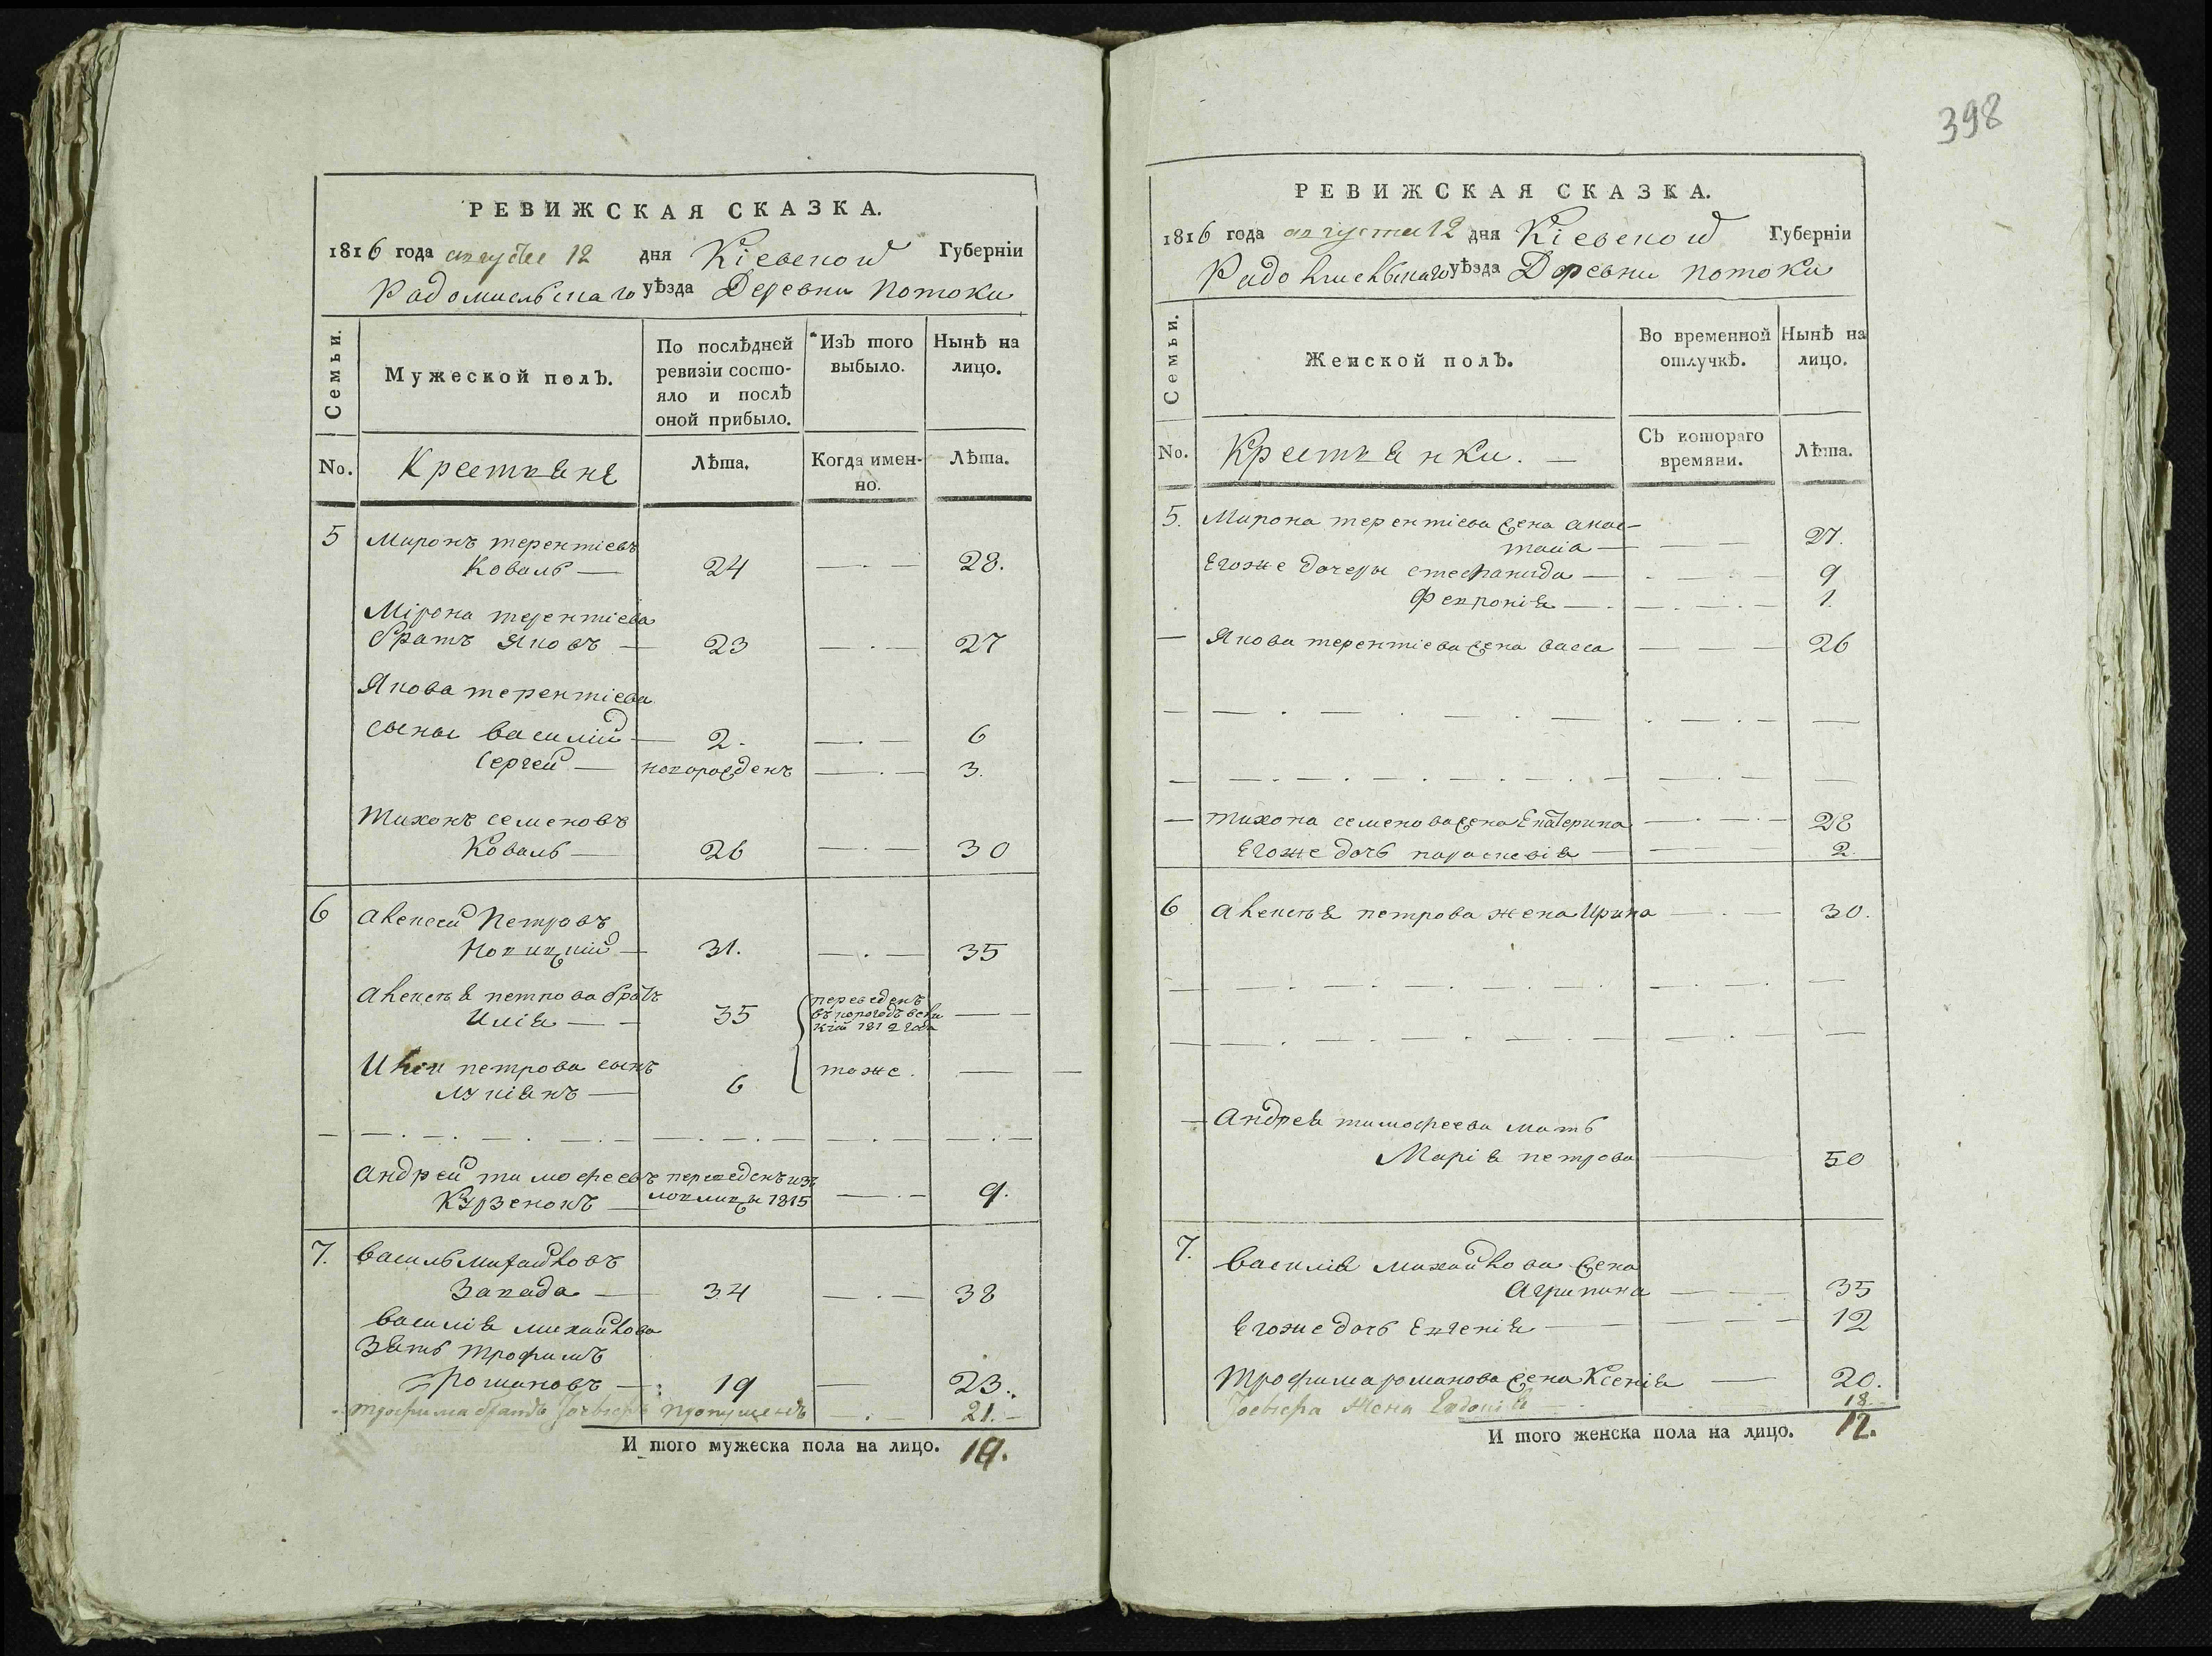 РЕВИЖСКАЯ СКАЗКА.
1816 года августа 12 дня Кіевской Губерніи
Радомысльскаго уѣзда Деревни Потоки
Семьи.
Мужеской полъ.
По послѣдней ревизіи состо-
яло и послѣ
оной прибыло.
Изъ того
выбыло.
Нынѣ на
лицо.
No.
Крестьяне
Лѣта.
Когда имен-
но.
Лѣта.
5 Миронъ терентіевъ
Коваль — 24 — . — 28.
Мірона терентіева
братъ Яковъ — 23 — . — 27
Якова терентіева
сыны василій — 2. — . — 6
Сергей — новорожденъ — . — 3.
Тихонъ семеновъ
Коваль — 26 — . — 30
6 Алексей Петровъ
31. — . — 35
Алексѣя петрова братъ
Илія — — 35 переведенъ
1812 года — —
Ильи петрова сынъ
Лукіянъ — 6 тоже. — —
Андрей тимофеевъ переведенъ изъ
Курзенокъ — 1815 — . — 9.
7. василь михайловъ
Запада — 34 — . — 38
василія михайлова
Зять Трофимъ
романовъ — 19 — 23.
трофима братъ пропущенъ — . — 21. —
И того мужеска пола на лицо. 19.
398
РЕВИЖСКАЯ СКАЗКА.
1816 года августа 12 дня Кіевской Губерніи
Радомысльскаго уѣзда Деревни потоки
Семьи.
Женской полъ.
Во временной
отлучкѣ.
Нынѣ на
лицо.
No.
Крестьянки. —
Съ котораго
времяни.
Лѣта.
5. Мирона терентіева жена анас-
тасіа — — — 27.
Егоже дочеры стефанида — . — . — 9
Февронія — . — . — . — 1.
— Якова терентіева жена васса — — — 26
— тихона семенова жена Екатерина — . — . — 28
Егоже дочь параскевія — — 2.
6 Алексѣя петрова жена Ирина — . — 30.
— Андрея тимофеева мать
Марія петрова — 50
7. василія михайлова жена
Агрипина — — 35
Егоже дочь Евгенія — — — — 12
Трофима романова жена Ксенія — 20.
жена Евдокія — 18.
И того женска пола на лицо. 12.